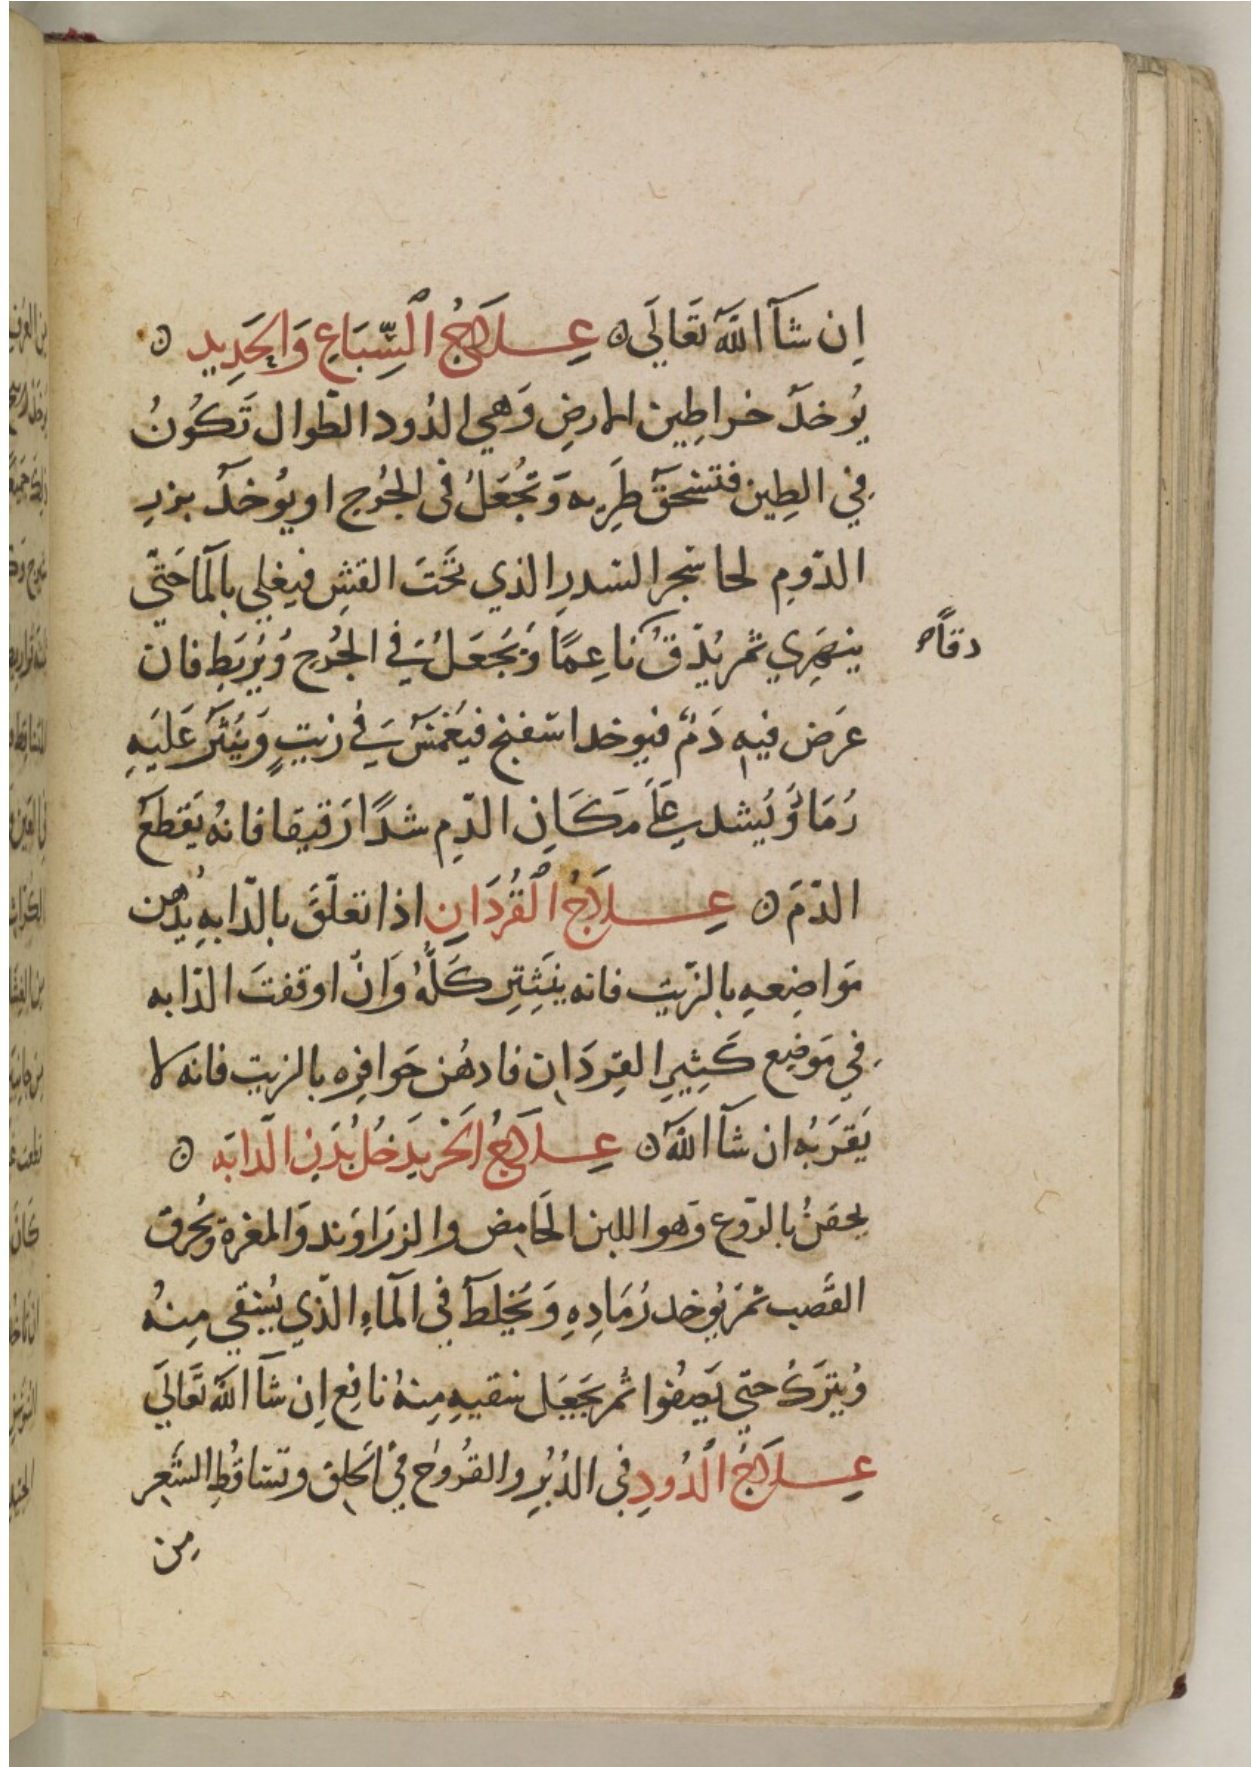 اِن شآ اللَّه تَعَالَى ن عِلَاجُ السِّبَاعِ وَالحَدِيدِ ن
يُوخدَ خراطِين الارضِ وَهي الدُود الطّوال تَكُونُ
في الطِين فتسْحَق طَرِيه وَتُجْعَلُ في الجُرح او يُوخدَ بزرِ
الدّومِ لحا شجر السّدرِ الذي تَحْتَ القشِر فيغلي بالمآ حَتّي
ينهَرِي ثم يُدّقُ ناعِمًا وَيَجعَلُ في الجُرح وَيُربَطِ فان
دقاً
عَرَض فيهِ دَمٌ فيوخد اسفنج فيغمَسَ في زيتٍ وَيَنثَرَ عَلَيهِ
رُمَاد وَيُشد عَلَى مَكَانِ الدّمِ شدًا رَقيقا فانهُ يَقطَعَ
الدّمَ ن عِلَاجُ الْقُرْدَانِ اذا تعلّقَ بالدّابهِ يُدهن
مَواضِعهِ بالزّيت فانه ينَثِتِر كَلّهُ وَانّ اوقفتَ الدّابه
في مَوضِع كَثِيرِ القِردَان فادهُن حَوافِره بالزيت فانه لا
يَقرَبهُ ان شآ اللهُ ن عِلَاجُ الحَر يَدخُل بُدَن الدّابَه ن
يحقنُ بالدّوع وَهو اللبن الحَامِض والزرَاوَند وَالمغرة وَيُحرق
القَصب ثم يُوخد رُمَادِهِ وَيَخلِط في المآءِ الذّي يُسقي مِنهُ
وُيترَكُ حتّي يَصفُوا ثم يَجعَل سقيهِ مِنهُ نافِع اِن شآ اللهَ تَعَالَي
عِلَاجُ الدُودِ في الدُبُرِ والقُرُوحُ في الحلق وتسَاقُطِ الشّعر
مِن